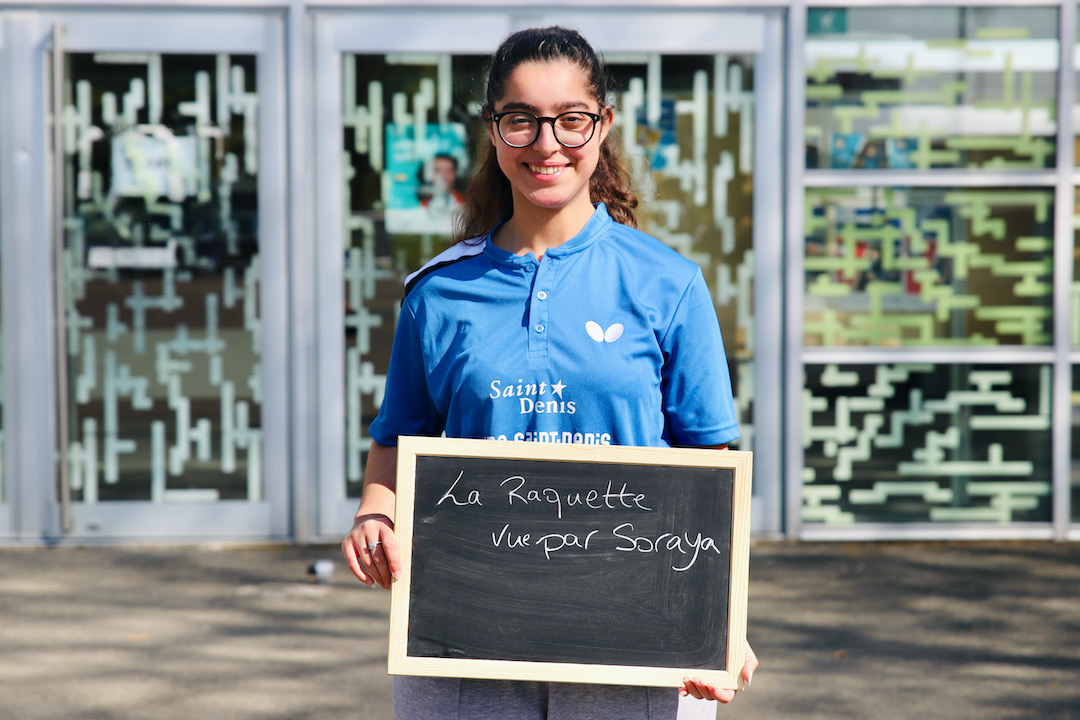 Saint★
Denis
Saint-Denis
La Raquette
vue par Soraya